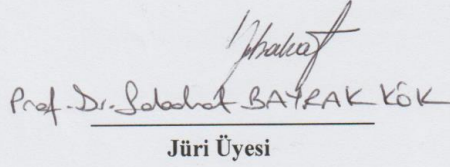 Prof. Dr. Sabahat BAYRAK KÖK
Jüri Üyesi